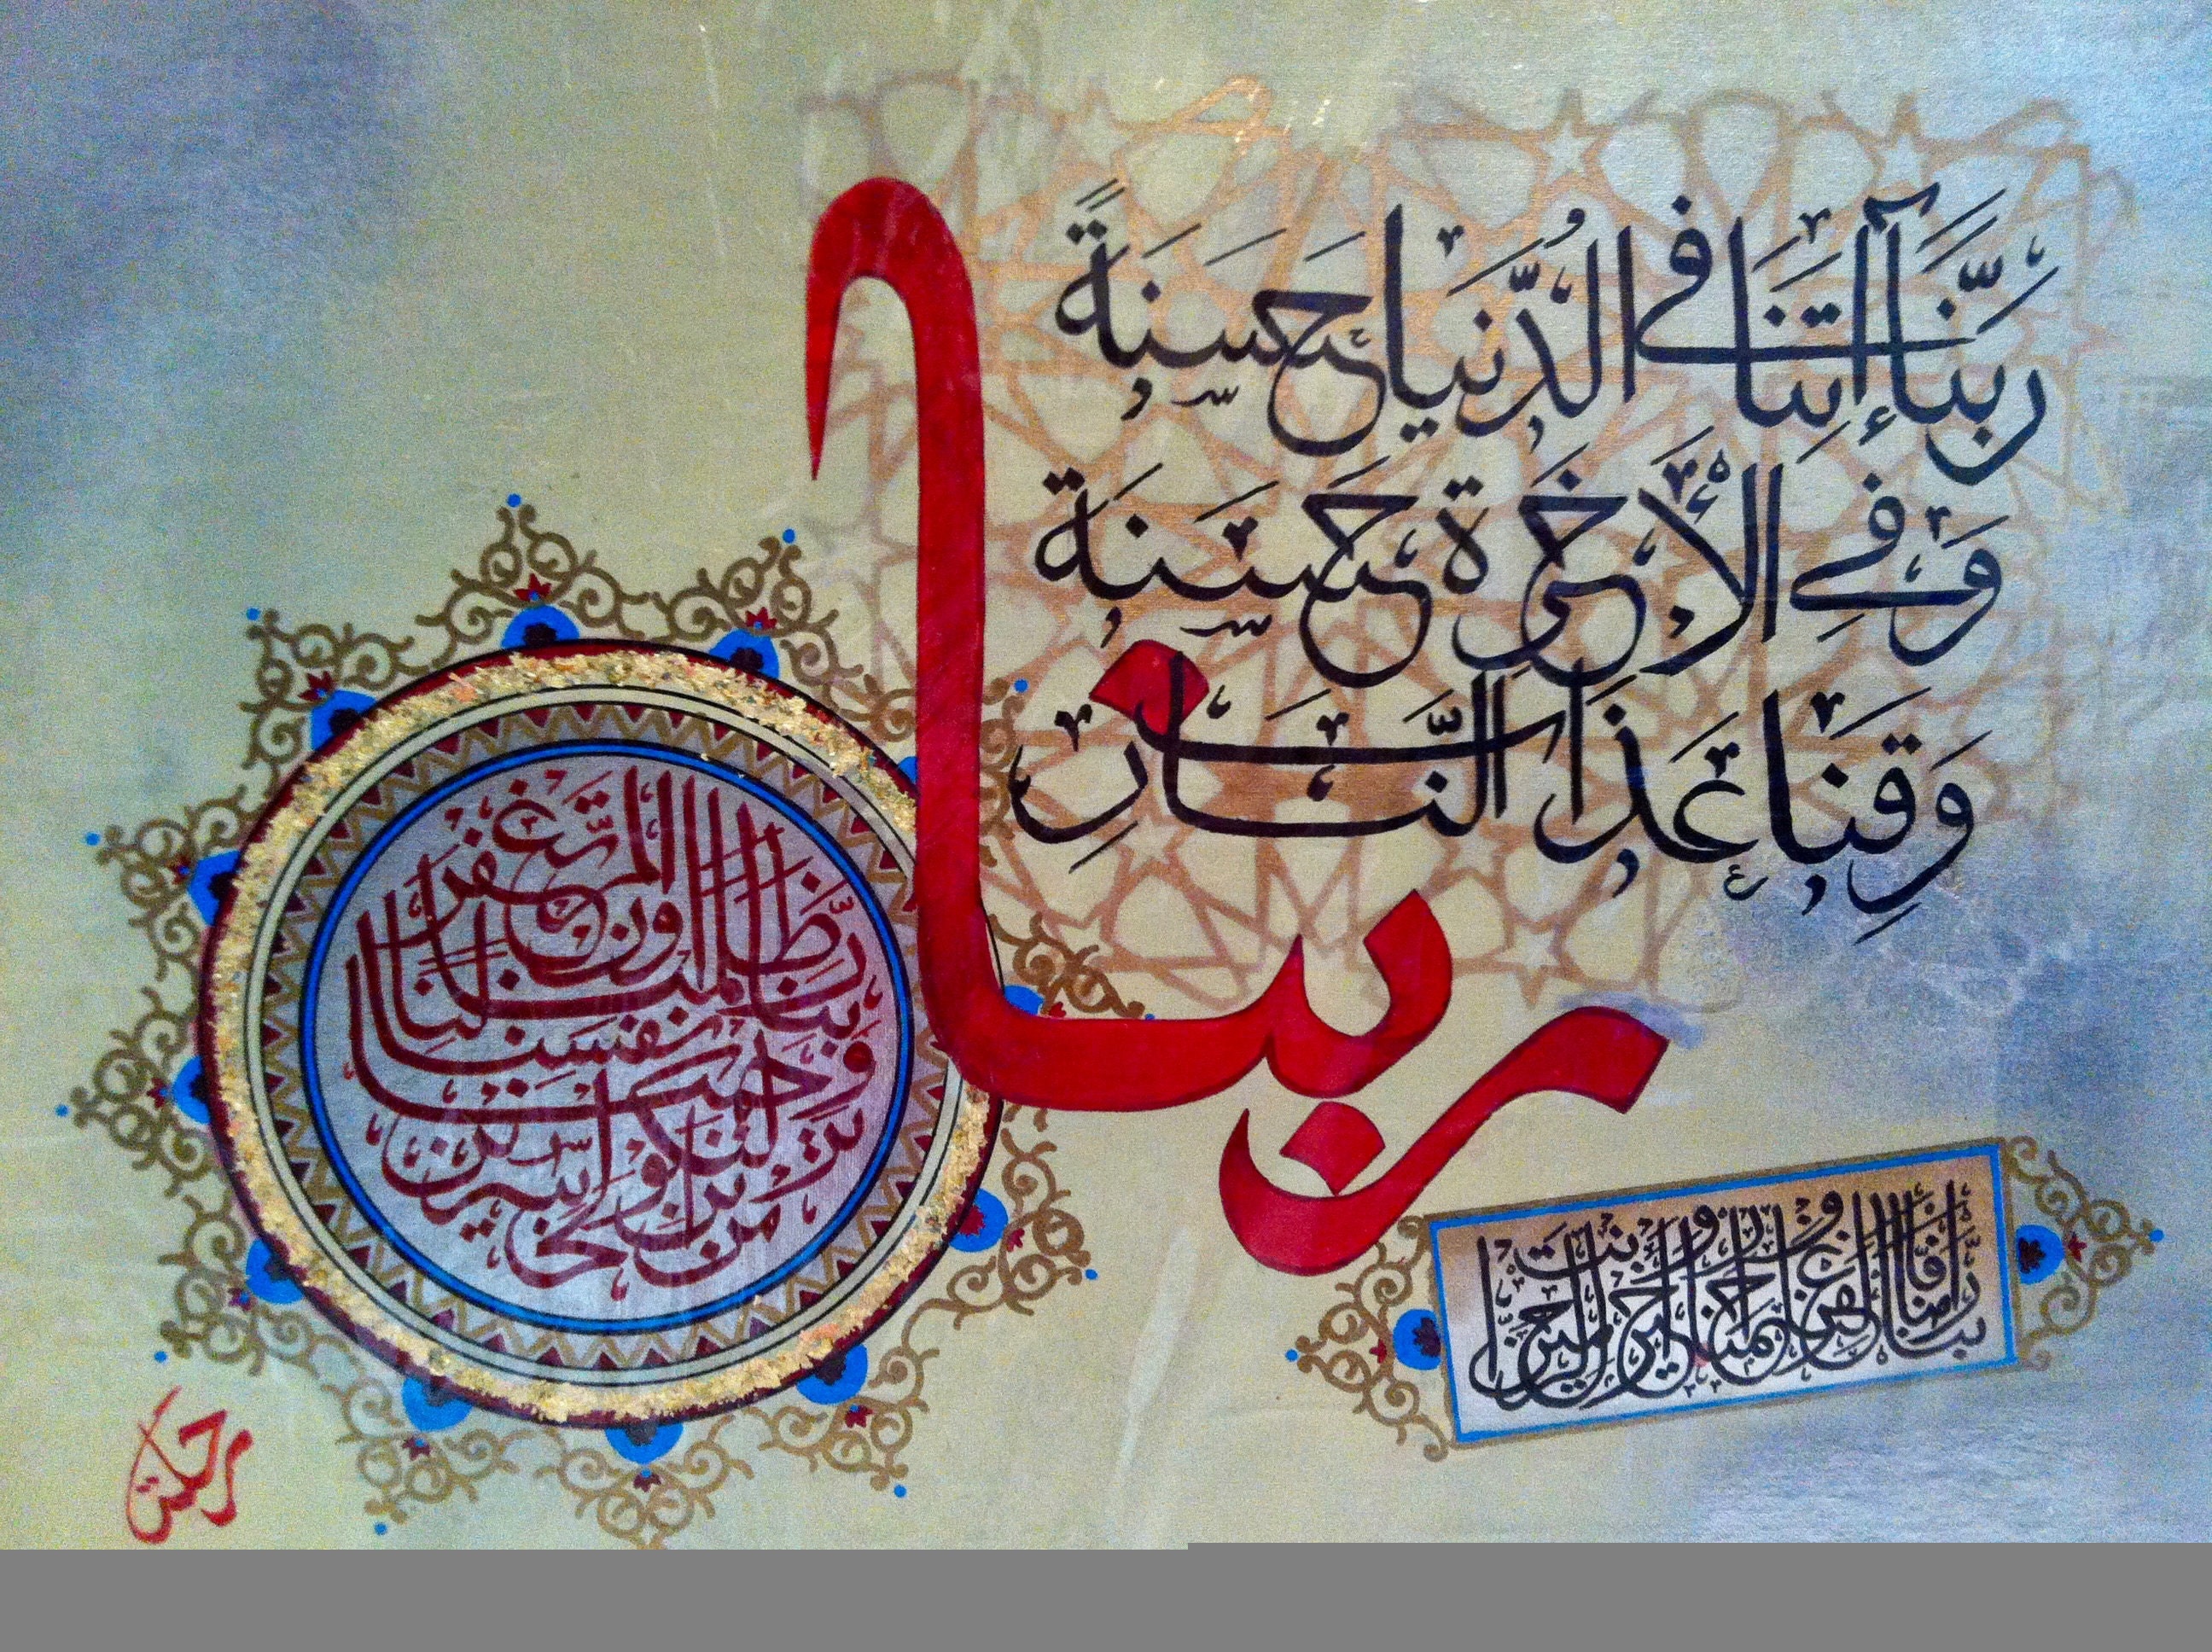 رَبَّنَا آتِنَا فِي الدُّنْيَا حَسَنَةً
وَفِي الْآخِرَةِ حَسَنَةً
وَقِنَا عَذَابَ النَّارِ
ربنا
ربنا ظلمنا أنفسنا وإن لم تغفر لنا وترحمنا لنكونن من الخاسرين
ربنا آمنا فاغفر لنا وارحمنا وأنت خير الراحمين